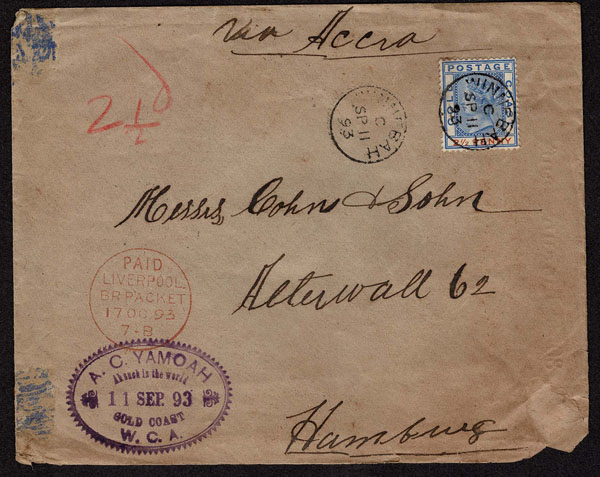 via Accra
2½ d
POSTAGE
2½ PENNY
WINNEBAH
C
SP 11
93
BAH
C
SP 11
93
Messrs, Cohns & Sohn
Alterwall 62
Hamburg
PAID
LIVERPOOL
BR PACKET
17 OC 93
7-B
A. C. YAMOAH
Ahsuch is the world
11 SEP. 93
GOLD COAST
W. C. A.